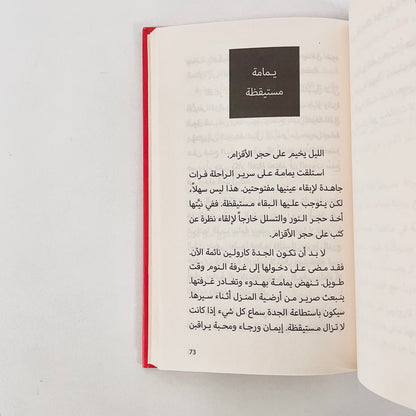 يـمامة
مستيقظة
الليل يخيم على حجر الأقزام.
استلقت يمامة على سرير الراحلة فرات
جاهدة لإبقاء عينيها مفتوحتين. هذا ليس سهلاً،
لكن يتوجب عليها البقاء مستيقظة. ففي نيّتها
أخذ حجر النور والتسلل خارجاً لإلقاء نظرة عن
كثب على حجر الأقزام.
لا بد أن تكون الجدة كارولين نائمة الآن.
فقد مضى على دخولها إلى غرفة النوم وقت
طويل. تنهض يمامة بهدوء وتغادر غرفتها.
ينبعث صرير من أرضية المنزل أثناء سيرها.
سيكون باستطاعة الجدة سماع كل شيء إذا كانت
لا تزال مستيقظة. إيمان ورجاء ومحبة يراقبن
73